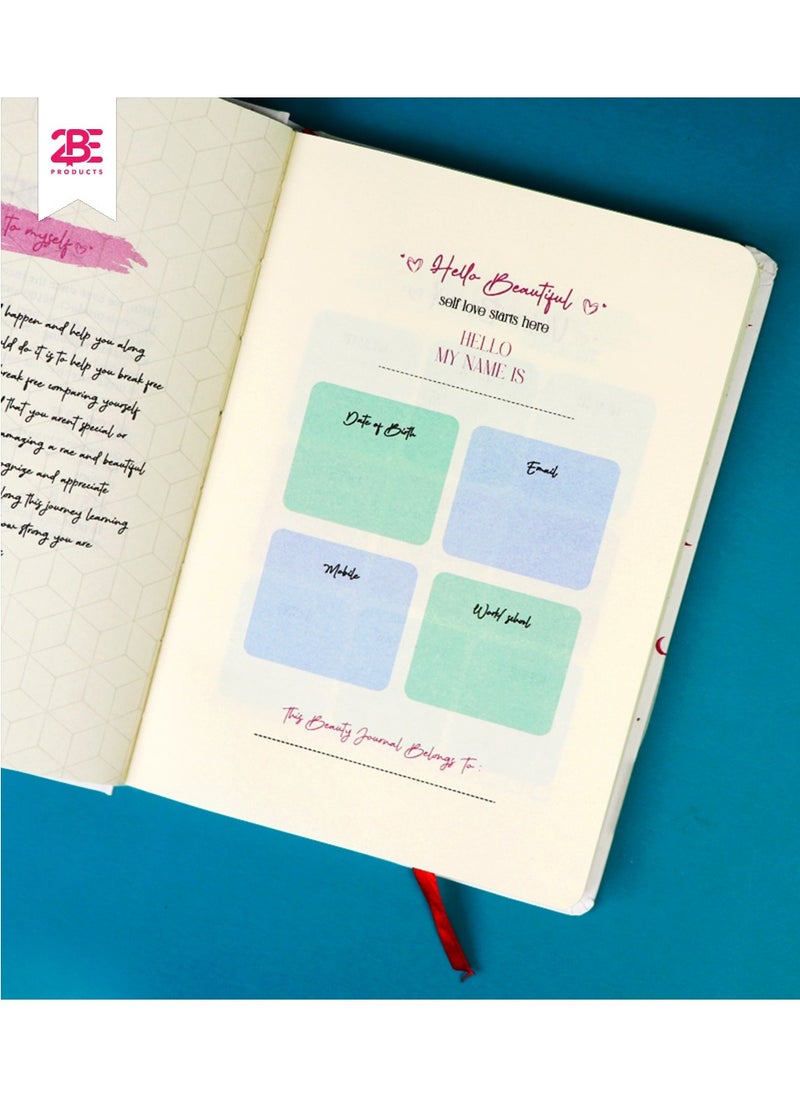 2BE
PRODUCTS
to myself
happen and help you along
do it is to help you break free
break free comparing yourself
that you arent special or
amazing a rae and beautiful
and appreciate
this journey learning
strong you are
Hello Beautiful
self love starts here
HELLO
MY NAME IS
Date of Birth
Email
Mobile
Work/ school
This Beauty Journal Belongs To :